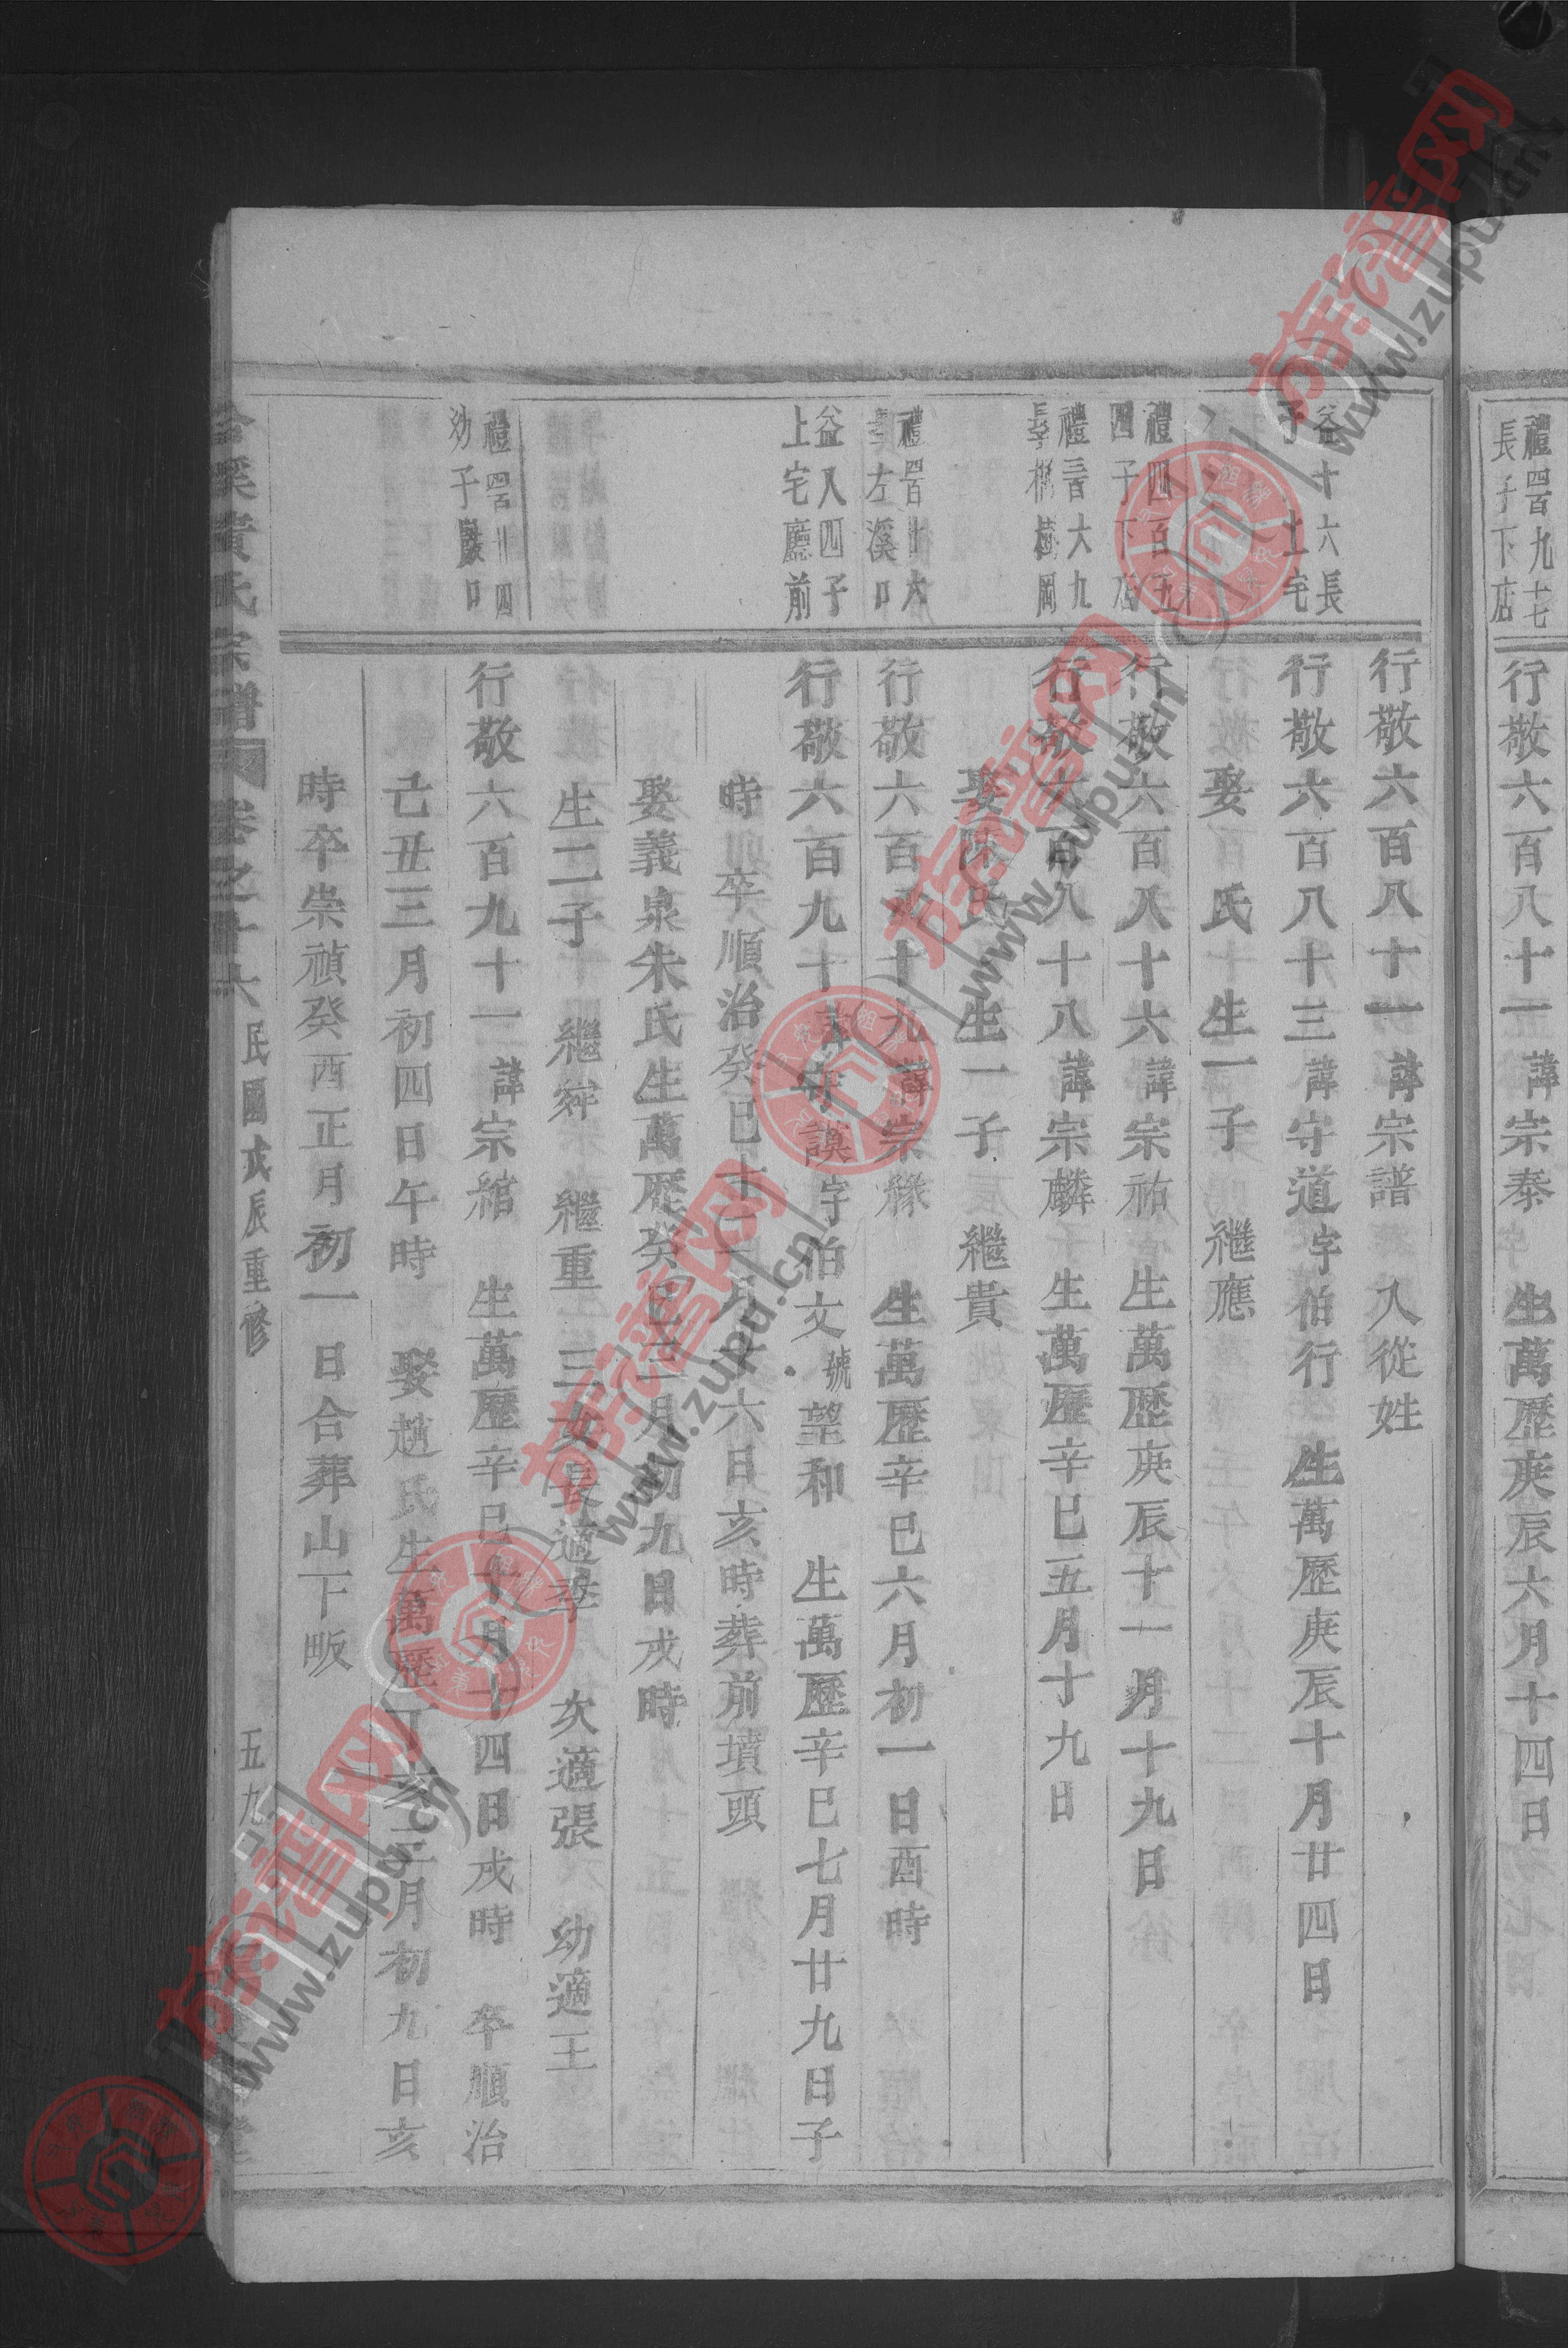 禮四百九十七
長子下店
行敬六百八十一諱宗泰　生萬歷庚辰六月十四日
行敬六百八十一諱宗譜　入從姓
益十六長
子上宅
行敬六百八十三諱守道字伯行　生萬歷庚辰十月廿四日
娶　氏　生一子　繼應
禮四百五
四子下店
行敬六百八十六諱宗祐　生萬歷庚辰十一月十九日
大九
行敬六百八十八諱宗麟　生萬歷辛巳五月十九日
娶陳氏　生一子　繼貴
左溪口
行敬六百八十九諱宗緣　生萬歷辛巳六月初一日酉時
益八四子
上宅廳前
行敬六百九十諱守謨字伯文號望和　生萬歷辛巳七月廿九日子
時　卒順治癸巳十二月十六日亥時葬前墳頭
娶義泉朱氏生萬歷癸巳三月初九日戌時
生二子　繼　繼重　三女長適李　次適張　幼適王
禮四百廿四
幼子巖口
行敬六百九十一諱宗綰　生萬歷辛巳十月十四日戌時　卒順治
己丑三月初四日午時　娶趙氏生萬歷丁亥三月初九日亥
時卒崇禎癸酉正月初一日合葬山下畈
溪黃氏宗譜　卷之十六　民國戊辰重修　五九
族譜网
www.zupu.cn
族譜网
www.zupu.cn
族譜网
www.zupu.cn
族譜网
www.zupu.cn